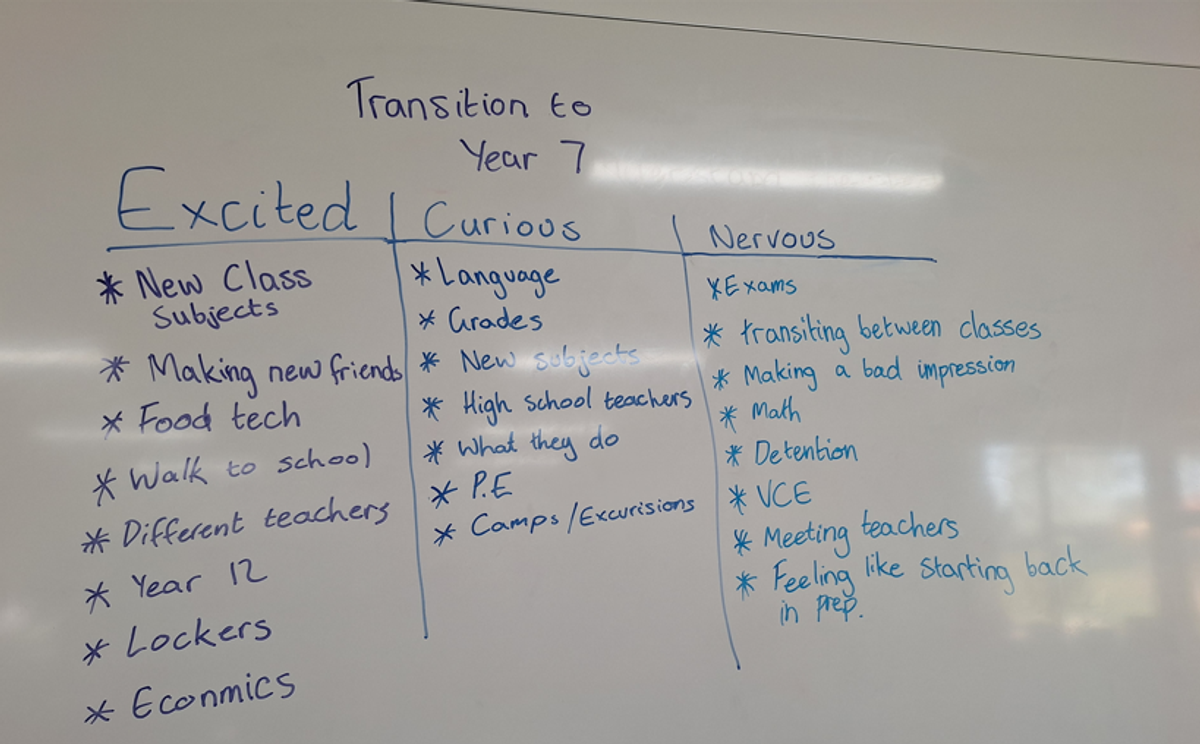 Transition to
Year 7
Excited
* New Class
Subjects
* Making new friends
* Food tech
* Walk to school
* Different teachers
* Year 12
* Lockers
* Econmics
Curious
* Language
* Grades
* New subjects
* High school teachers
* What they do
* P.E
* Camps/Excurisions
Nervous
* Exams
* transiting between classes
* Making a bad impression
* Math
* Detention
* VCE
* Meeting teachers
* Feeling like starting back
in prep.